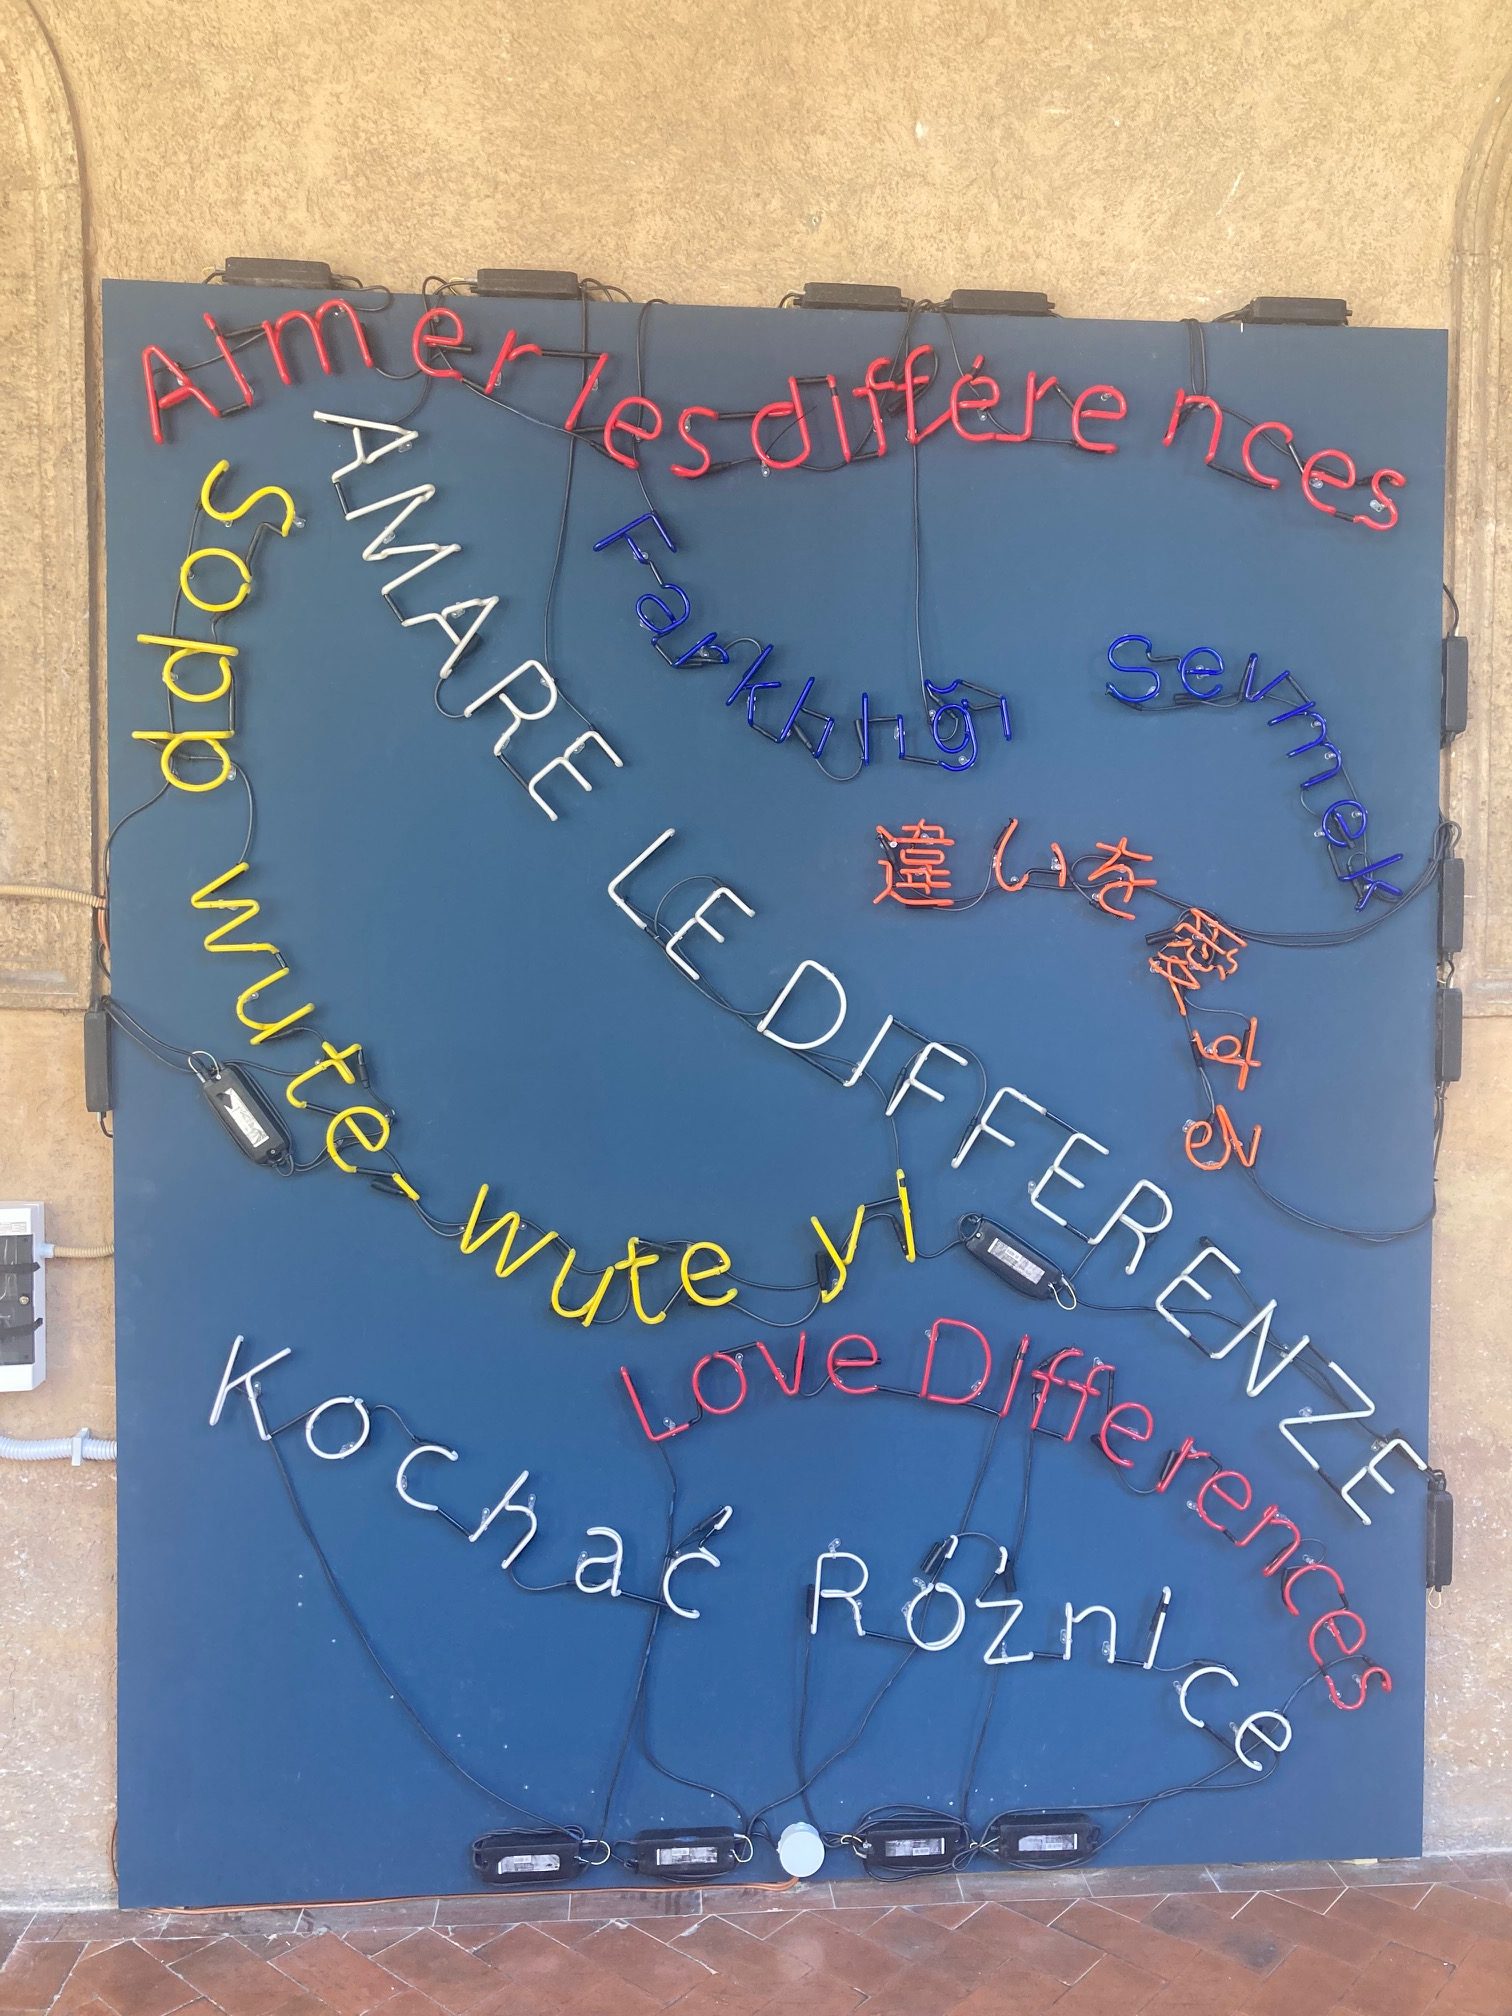 Aimer les différences
AMARE LE DIFFERENZE
Farklılığı
Sevmek
違いを愛する
Sopp wute-wute yi
Love Differences
Kochać Różnice